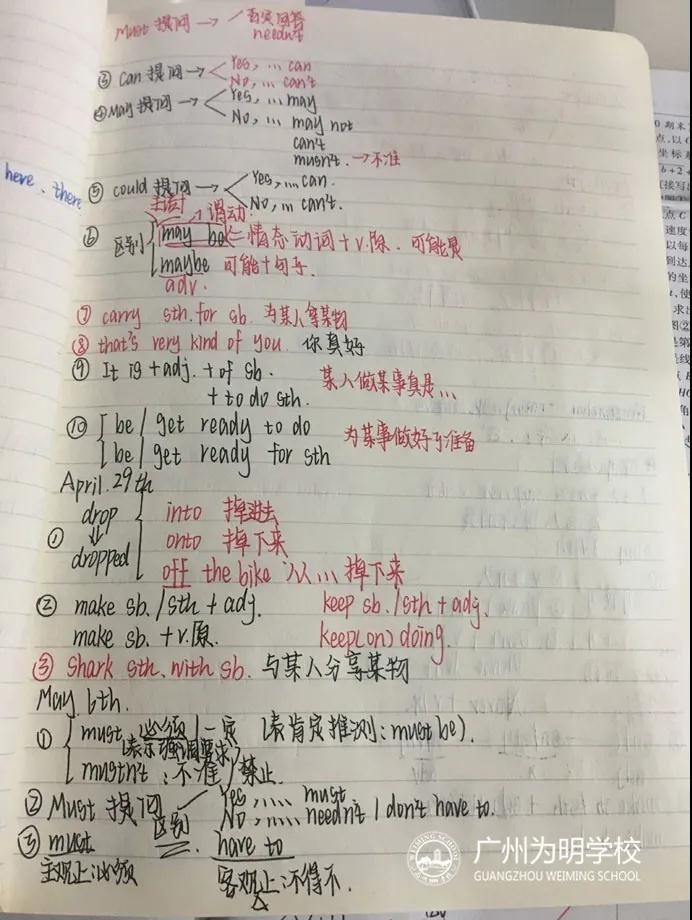 Must 提问 → 否定回答
needn't
③ can 提问 → Yes, ... can
No, ... can't
④ May 提问 → Yes, ... may
No, ... may not
can't
musn't. → 不准
here、there
⑤ could 提问 → Yes, ... can.
No, ... can't.
主语+ → 谓动.
⑥ 区别 may be = 情态动词 + v.原. 可能是
maybe 可能 + 句子.
adv.
⑦ carry sth. for sb. 为某人拿某物
⑧ that's very kind of you 你真好
⑨ It is + adj. + of sb. 某人做某事真是...
+ to do sth.
⑩ be / get ready to do 为某事做好了准备
be / get ready for sth
April. 29th
① drop into 掉进去
↓ onto 掉下来
dropped off the bike 从... 掉下来
② make sb. /sth + adj. keep sb. /sth + adj.
make sb. + v.原. keep(on) doing.
③ Shark sth. with sb. 与某人分享某物
May. 6th.
① must 必须 / 一定 (表肯定推测: must be).
(表示强调要求)
mustn't : 不准 / 禁止.
② Must 提问 Yes, .... must
No, .... needn't / don't have to.
③ must 区别 have to
主观上:必须 客观上:不得不.
广州为明学校
GUANGZHOU WEIMING SCHOOL